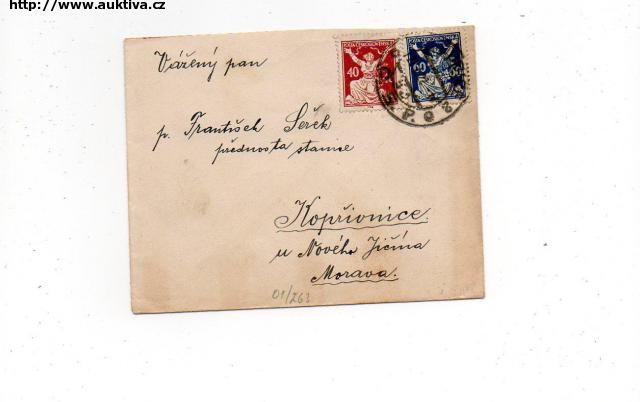 http://www.auktiva.cz
Vážený pan
POŠTA ČESKOSLOVENSKÁ
40
60 60
p. František Serěk
přednosta stanice
Kopřivnice
u Nového Jičína
Morava.
01/263